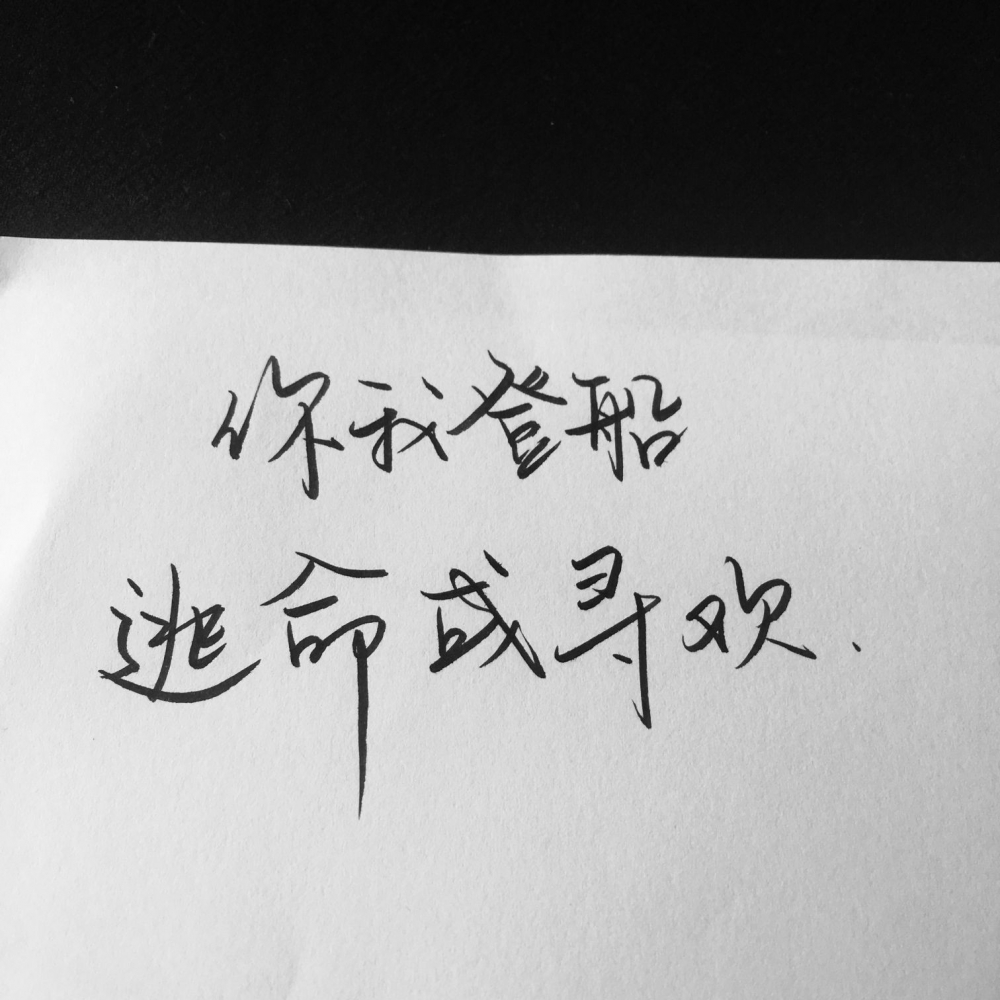 你我登船
逃命或寻欢.